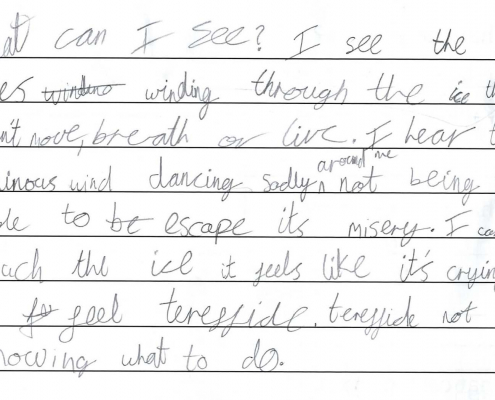 at can I see? I see the
es winding through the ice th
n't move, breath or live. I hear t
inous wind dancing sadly around me not being
le to be escape its misery. I ca
ach the ice it feels like it's crying
feel tereffide. tereffide not
nowing what to do.